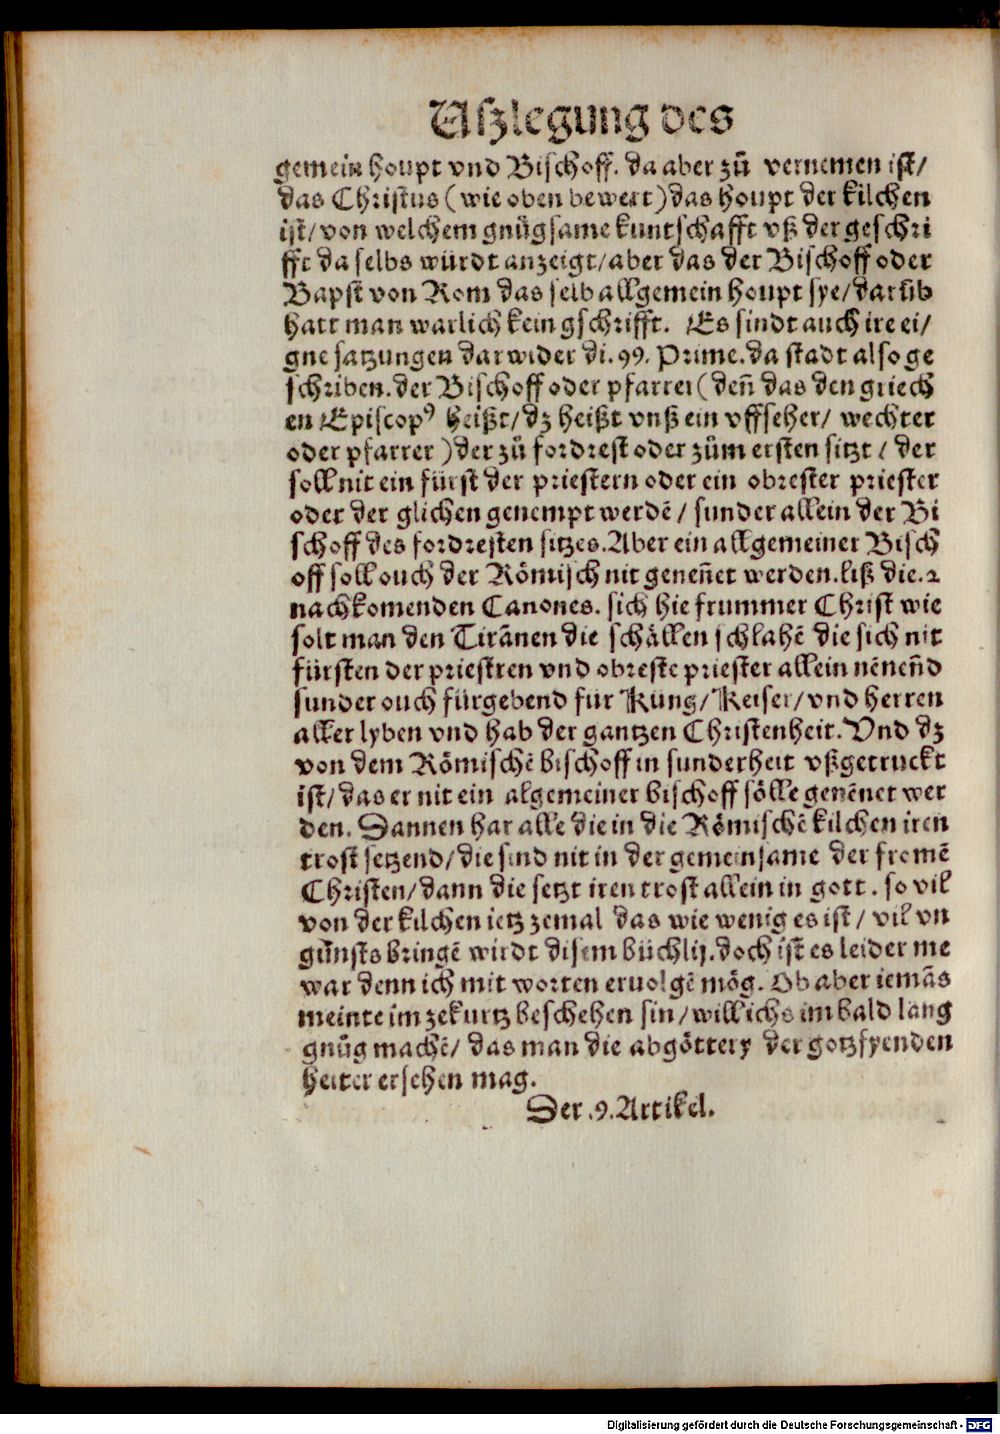 Uſzlegung des
gemein houpt vnd Biſchoff. da aber zů vernemen iſt/
das Chriſtus (wie oben bewert) das houpt der kilchen
iſt/ von welchem gnůgſame kuntſchafft vß der geſchri
fft da ſelbs würdt anzeigt/ aber das der Biſchoff oder
Bapſt von Rom das ſelb allgemein houpt ſye/ darüb
hatt man warlich kein gſchrifft. Es ſindt auch ire ei/
gne ſatzungen darwider di. 99. Prime. da ſtadt alſo ge
ſchriben. der Biſchoff oder pfarrer (den̄ das den griech
en Epiſcopꝰ heißt/ dz heißt vnß ein vffſeher/ wechter
oder pfarrer) der zů fordreſt oder zům erſten ſitzt/ der
ſoll nit ein fürſt der prieſtern oder ein obreſter prieſter
oder der glichen genempt werdē/ ſunder allein der Bi
ſchoff des fordreſten ſitzes. Aber ein allgemeiner Biſch
off ſoll ouch der Römiſch nit genen̄et werden. liß die. 2
nachkomenden Canones. ſich hie frummer Chriſt wie
ſolt man den Tirānen die ſchällen ſchlahē die ſich nit
fürſten der prieſtren vnd obreſte prieſter allein nēnen̄d
ſunder ouch fürgebend für Küng/ Keiſer/ vnd herren
aller lyben vnd hab der gantzen Chriſtenheit. Vnd dz
von dem Römiſchē biſchoff in ſunderheit vßgetruckt
iſt/ das er nit ein algemeiner biſchoff ſölle genēnet wer
den. Dannen har alle die in die Römiſchē kilchen iren
troſt ſetzend/ die ſind nit in der gemeinſame der fromē
Chriſten/ dann die ſetzt iren troſt allein in gott. ſo vil
von der kilchen ietz zemal das wie wenig es iſt/ vil vn
gůnſts bringē wirdt diſem büchlij. doch iſt es leider me
war denn ich mit worten eruolgē mög. Ob aber iemās
meinte im zekurtz beſchehen ſin/ will ichs im bald lang
gnůg machē/ das man die abgöttery der gotzfyenden
heiter erſehen mag.
Der .9. Artikel.
Digitalisierung gefördert durch die Deutsche Forschungsgemeinschaft - DFG